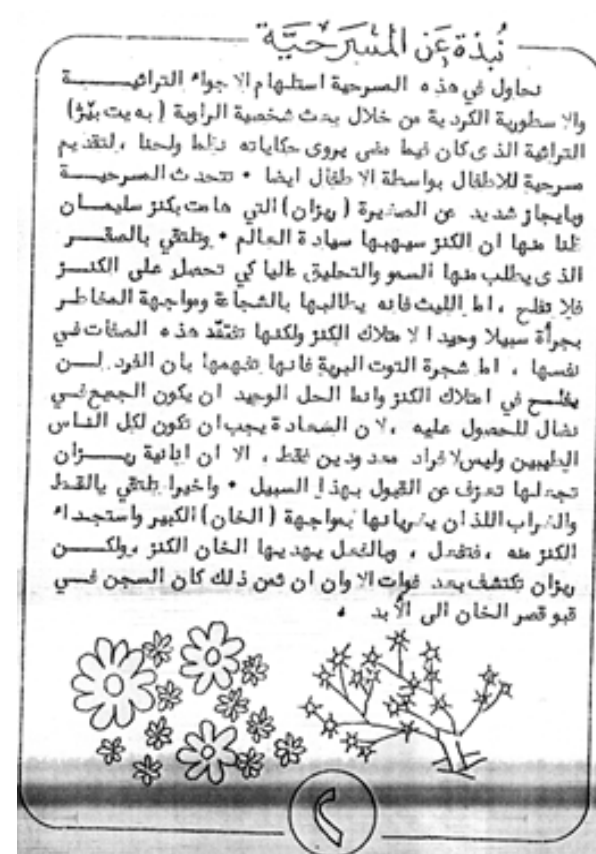 نُبذة عَن المسْرَحيَّة
نحاول في هذه المسرحية استلهام الاجواء التراثيــة
والاسطورية الكردية من خلال بعث شخصية الراوية (به يت بێژ)
التراثية الذى كان فيما مضى يروى حكاياته نظما ولحنا ، لتقديم
مسرحية للاطفال بواسطة الاطفال ايضا • تتحدث المسرحيــة
وبايجاز شديد عن الصغيرة (ريزان) التي هامت بكنز سليمــان
ظنا منها ان الكنز سيهبها سيادة العالم • وتلتقي بالصقــر
الذى يطلب منها السمو والتحليق عاليا كي تحصل على الكنــز
فلا تفلح ، اما الليث فانه يطالبها بالشجاعة ومواجهة المخاطــر
بجرأة سبيلا وحيدا لامتلاك الكنز ولكنها تفتقد هذه الصفات في
نفسها ، اما شجرة التوت البرية فانها تفهمها بان الفرد لــن
يفلــح في امتلاك الكنز وانما الحل الوحيد ان يكون الجميع فــي
نضال للحصول عليه ، لان السعادة يجب ان تكون لكل النــاس
الطيبين وليس لافراد معدودين فقط ، الا ان انانية ريــزان
تجعلها تعزف عن القبول بهذا السبيل • واخيرا تلتقي بالقــط
والغراب اللذان يغريانها بمواجهة (الخان) الكبير واستجــداء
الكنز منه ، فتفعل ، وبالفعل يهديها الخان الكنز ، ولكــن
ريزان تكتشف بعد فوات الاوان ان ثمن ذلك كان السجن فــي
قبو قصر الخان الى الأبد •
٢